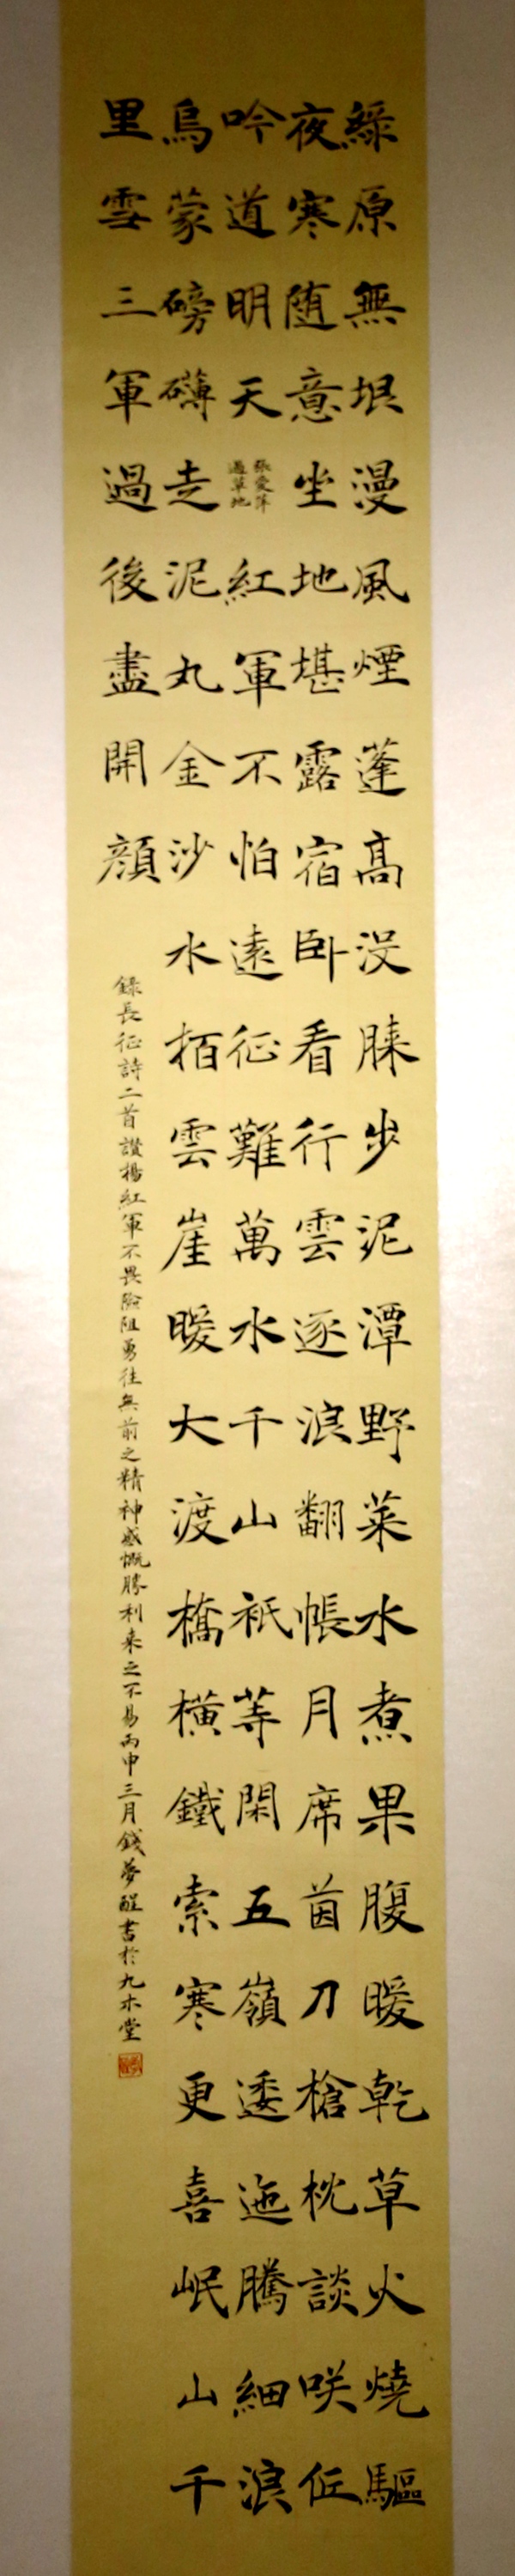 綠原無垠漫風煙蓬高没膝步泥潭野菜水煮果腹暖乾草火燒驅
夜寒随意坐地堪露宿卧看行雲逐浪翻帳月席茵刀槍枕談咲
吟道明天
張愛萍
過草地
紅軍不怕遠征難萬水千山祇等閑五嶺逶迤騰細浪
烏蒙磅礴走泥丸金沙水拍雲崖暖大渡橋横鐵索寒更喜岷山千
里雪三軍過後盡開顔
錄長征詩二首讃揚紅軍不畏險阻勇往無前之精神感慨勝利来之不易丙申三月錢夢醒書於九木堂